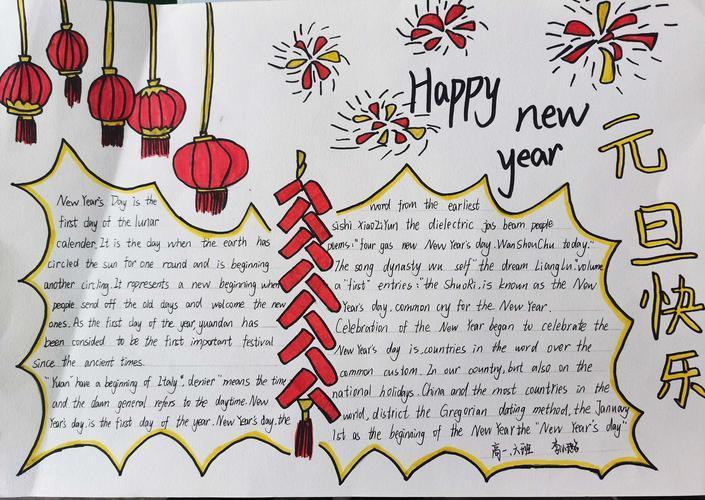 Happy new
year
元旦快乐
New Year's Day is the
first day of the lunar
calender. It is the day when the earth has
circled the sun for one round and is beginning
another circling. It represents a new beginning when
people send off the old days and welcome the new
ones. As the first day of the year, yuandan has
been consided to be the first important festival
since the ancient times.
"Yuan" have a beginning of Italy ", denier" means the time
and the dawn general refers to the daytime. New
Year's day. is the first day of the year. New Year's day. the
word from the earliest
sishi XiaoZiYun the dielectric jas beam people
plems: "four gas new New Year's day. WanShouChu today."
The song dynasty wu self "the dream LiangLu." volume
a "first" entries: "the ShuoRi. is known as the New
Year's day. common cry for the New Year.
Celebration of the New Year began to celebrate the
New Year's day is. countries in the word over the
common custom. In our country, but also on the
national holidays. China and the most countries in the
world, district the Gregorian dating method, the January
1st as the beginning of the New Year. the "New Year's day"
高一.六班